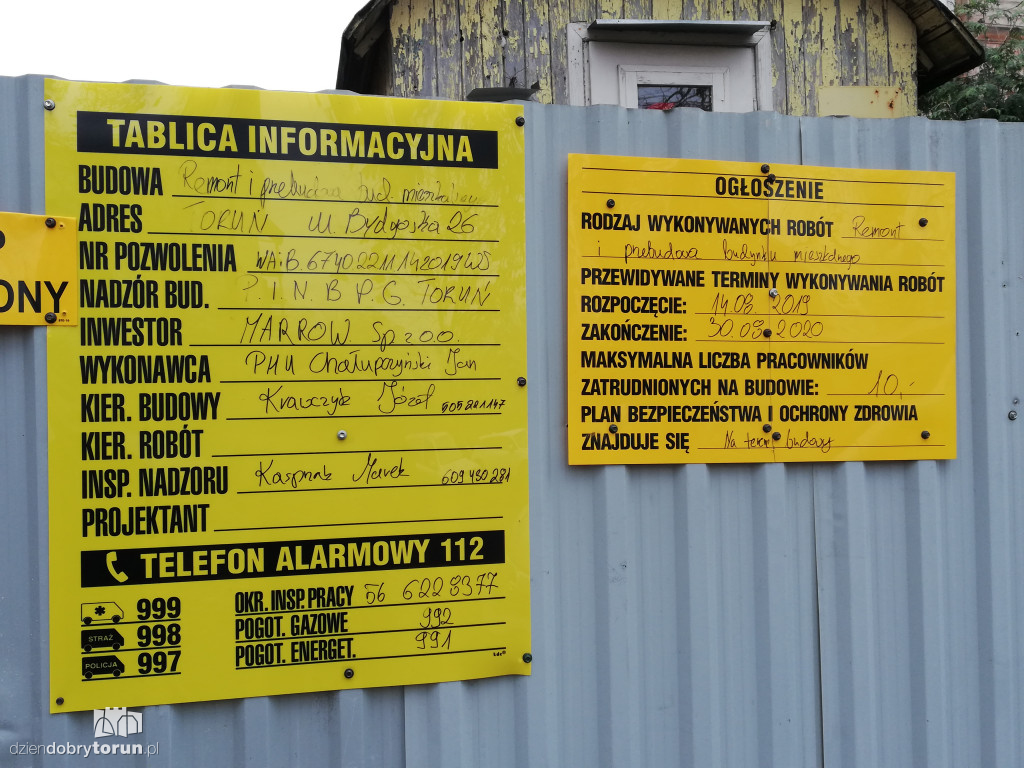 TABLICA INFORMACYJNA
BUDOWA Remont i przebudowa bud. mieszkalnego
ADRES TORUŃ ul. Bydgoska 26
NR POZWOLENIA WAiB.6740.22.11.142019WS
NADZÓR BUD. P.I.N.B P.G. TORUŃ
INWESTOR MARROW Sp z o.o.
WYKONAWCA PHU Chałupczyński Jan
KIER. BUDOWY Krawczyk Józef
KIER. ROBÓT
INSP. NADZORU Kasprzak Marek
PROJEKTANT
TELEFON ALARMOWY 112
999
STRAŻ 998
POLICJA 997
OKR. INSP. PRACY 56 6228377
POGOT. GAZOWE 992
POGOT. ENERGET. 991
P
ONY
OGŁOSZENIE
RODZAJ WYKONYWANYCH ROBÓT Remont
i przebudowa budynku mieszkalnego
PRZEWIDYWANE TERMINY WYKONYWANIA ROBÓT
ROZPOCZĘCIE: 14.03.2019
ZAKOŃCZENIE: 30.09.2020
MAKSYMALNA LICZBA PRACOWNIKÓW
ZATRUDNIONYCH NA BUDOWIE: 10,-
PLAN BEZPIECZEŃSTWA I OCHRONY ZDROWIA
ZNAJDUJE SIĘ Na terenie budowy
dziendobrytorun.pl